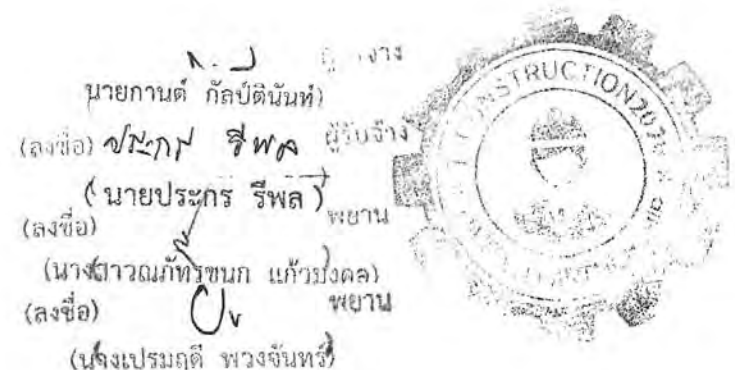 นายกานต์ กัลป์ตินันท์)
(ลงชื่อ) ประกร รีพล ผู้รับจ้าง
(นายประกร รีพล)
(ลงชื่อ) พยาน
(นางสาวณภัทรชนก แก้วมงคล)
(ลงชื่อ) พยาน
(นางเปรมฤดี พวงจันทร์)
CONSTRUCTION